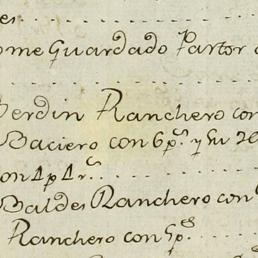 ome Guardado Partor
Berdin Ranchero con
Baciero con 6 p.s y su
con 4 p 4 r.s
Baldes Ranchero con
Ranchero con 5 p.s